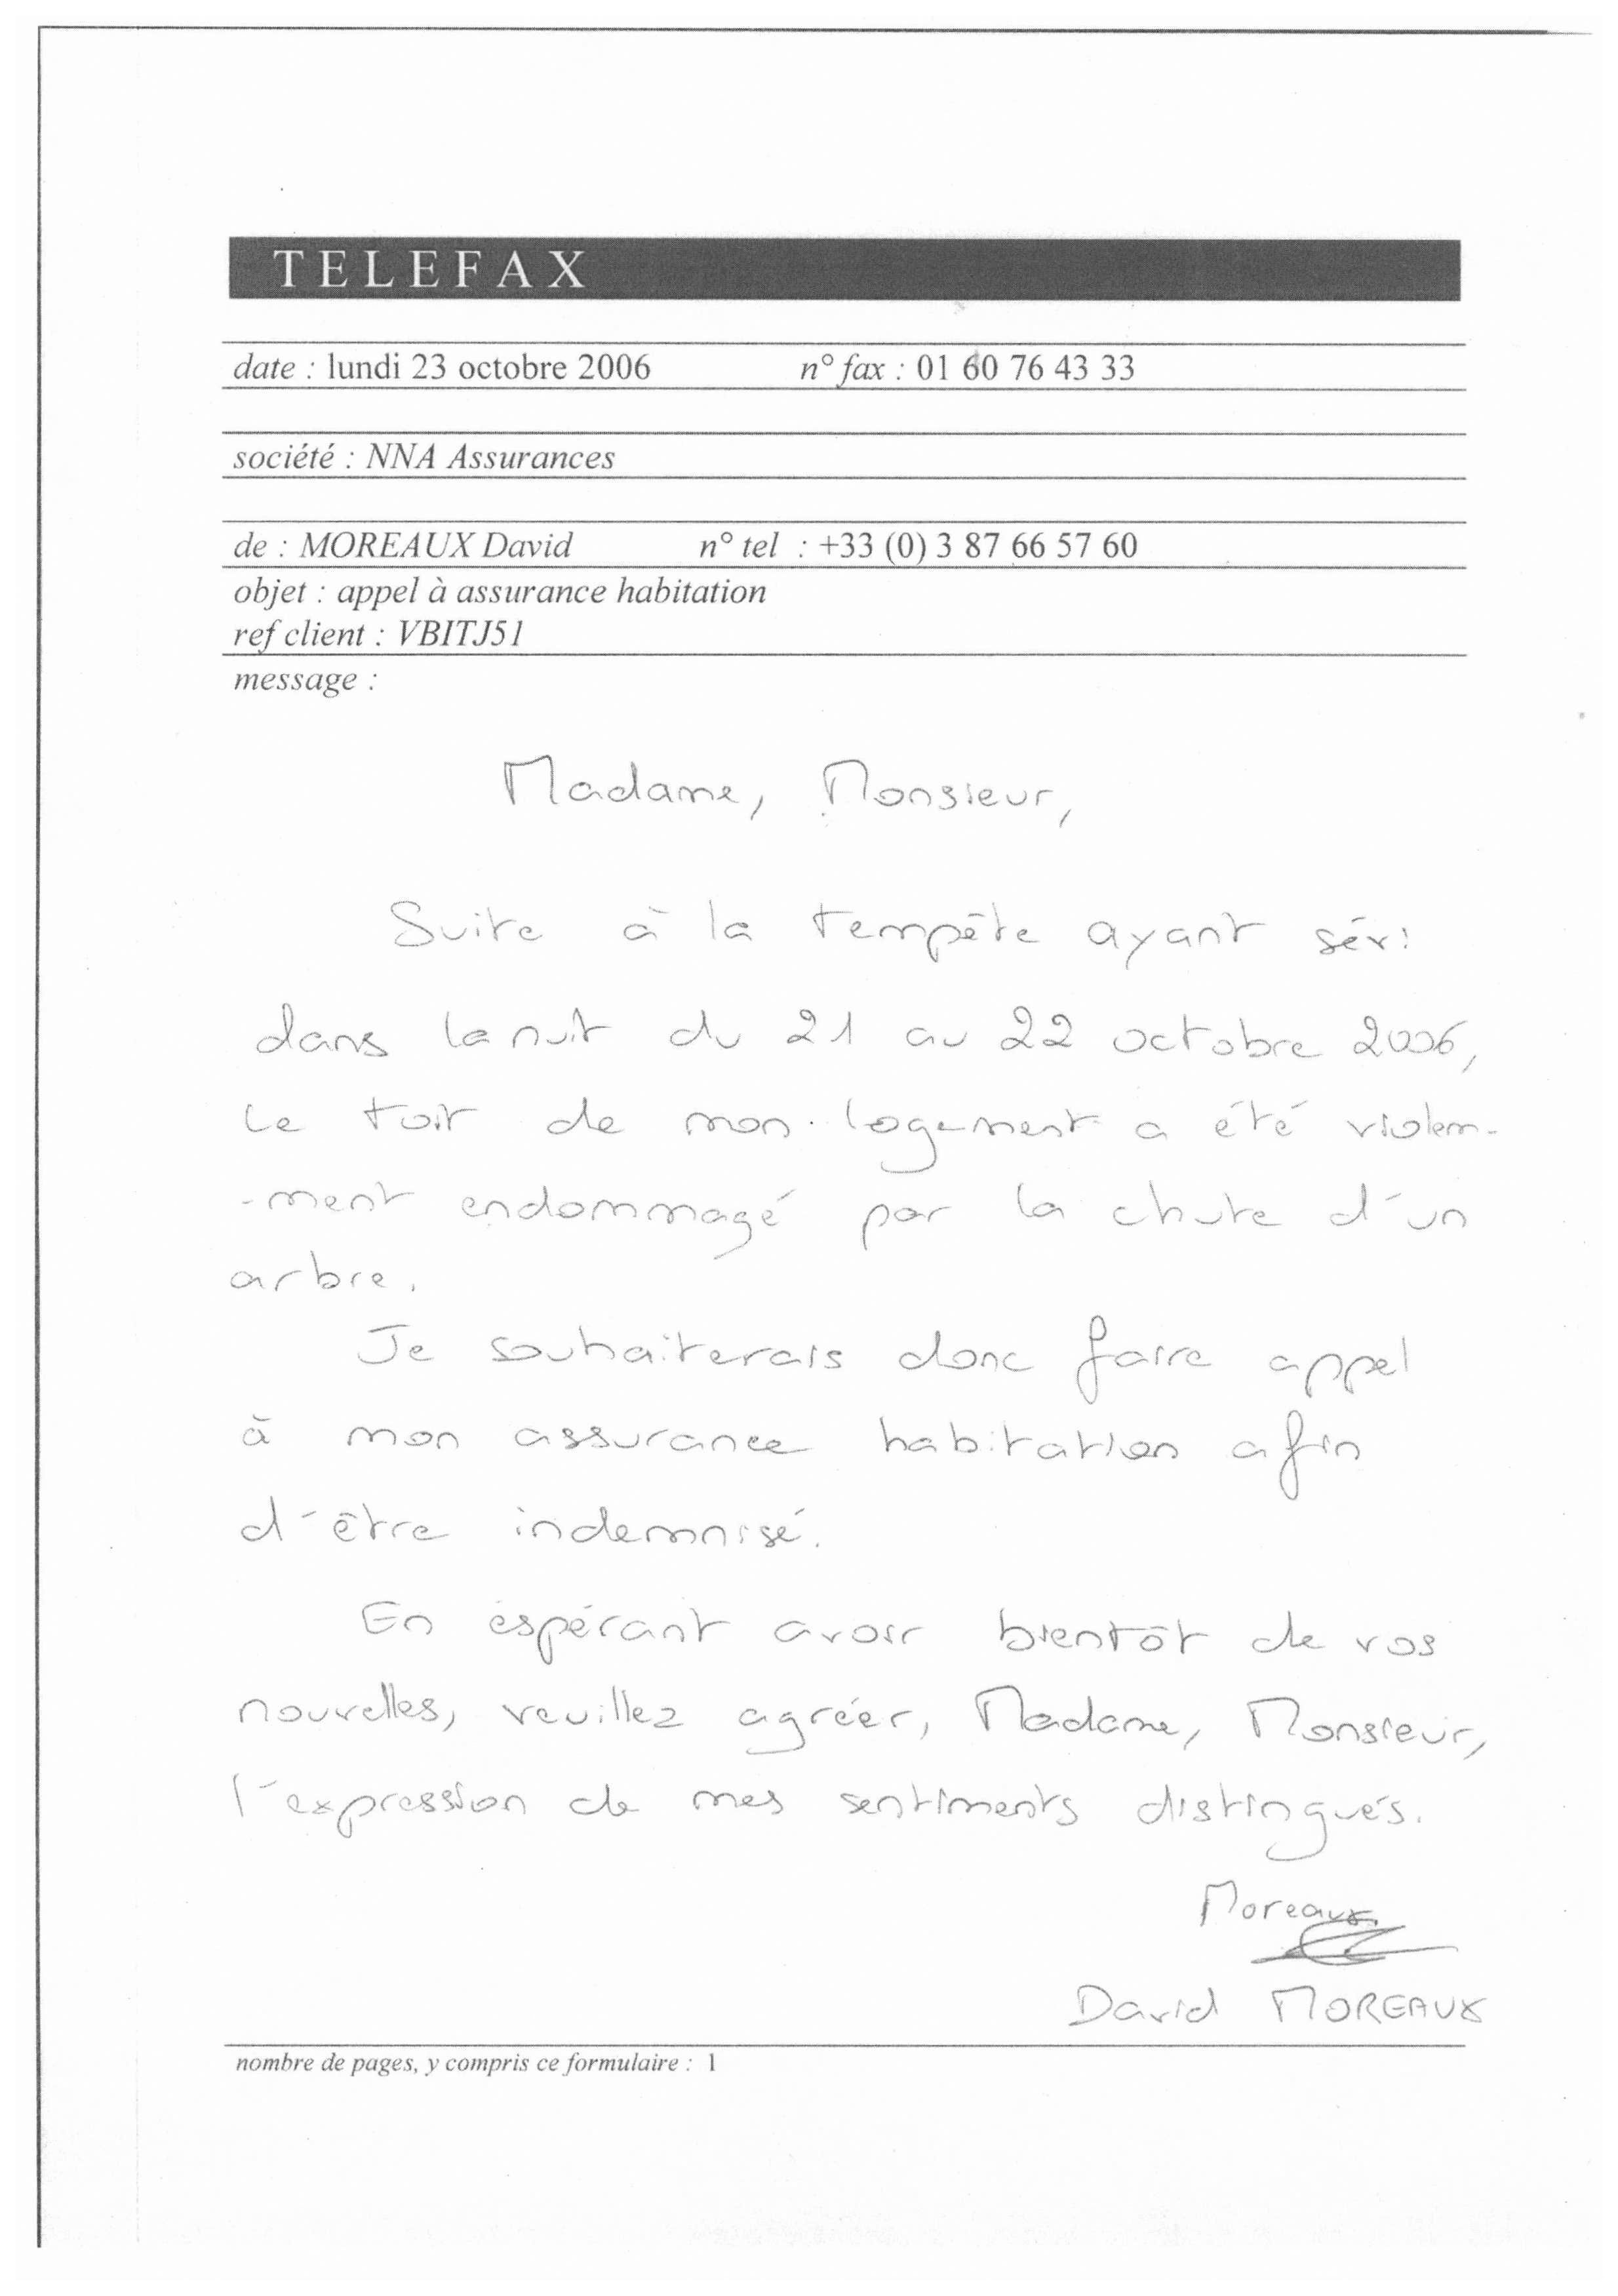 TELEFAX
date : lundi 23 octobre 2006 n° fax : 01 60 76 43 33
société : NNA Assurances
de : MOREAUX David n° tel : +33 (0) 3 87 66 57 60
objet : appel à assurance habitation
ref client : VBITJ51
message :
Madame, Monsieur,
Suite à la tempête ayant sévi
dans la nuit du 21 au 22 octobre 2006,
Le toit de mon logement a été violem-
-ment endommagé par la chute d'un
arbre.
Je souhaiterais donc faire appel
à mon assurance habitation afin
d'être indemnisé.
En espérant avoir bientôt de vos
nouvelles, veuillez agréer, Madame, Monsieur,
l'expression de mes sentiments distingués.
Moreaux
David MOREAUX
nombre de pages, y compris ce formulaire : 1